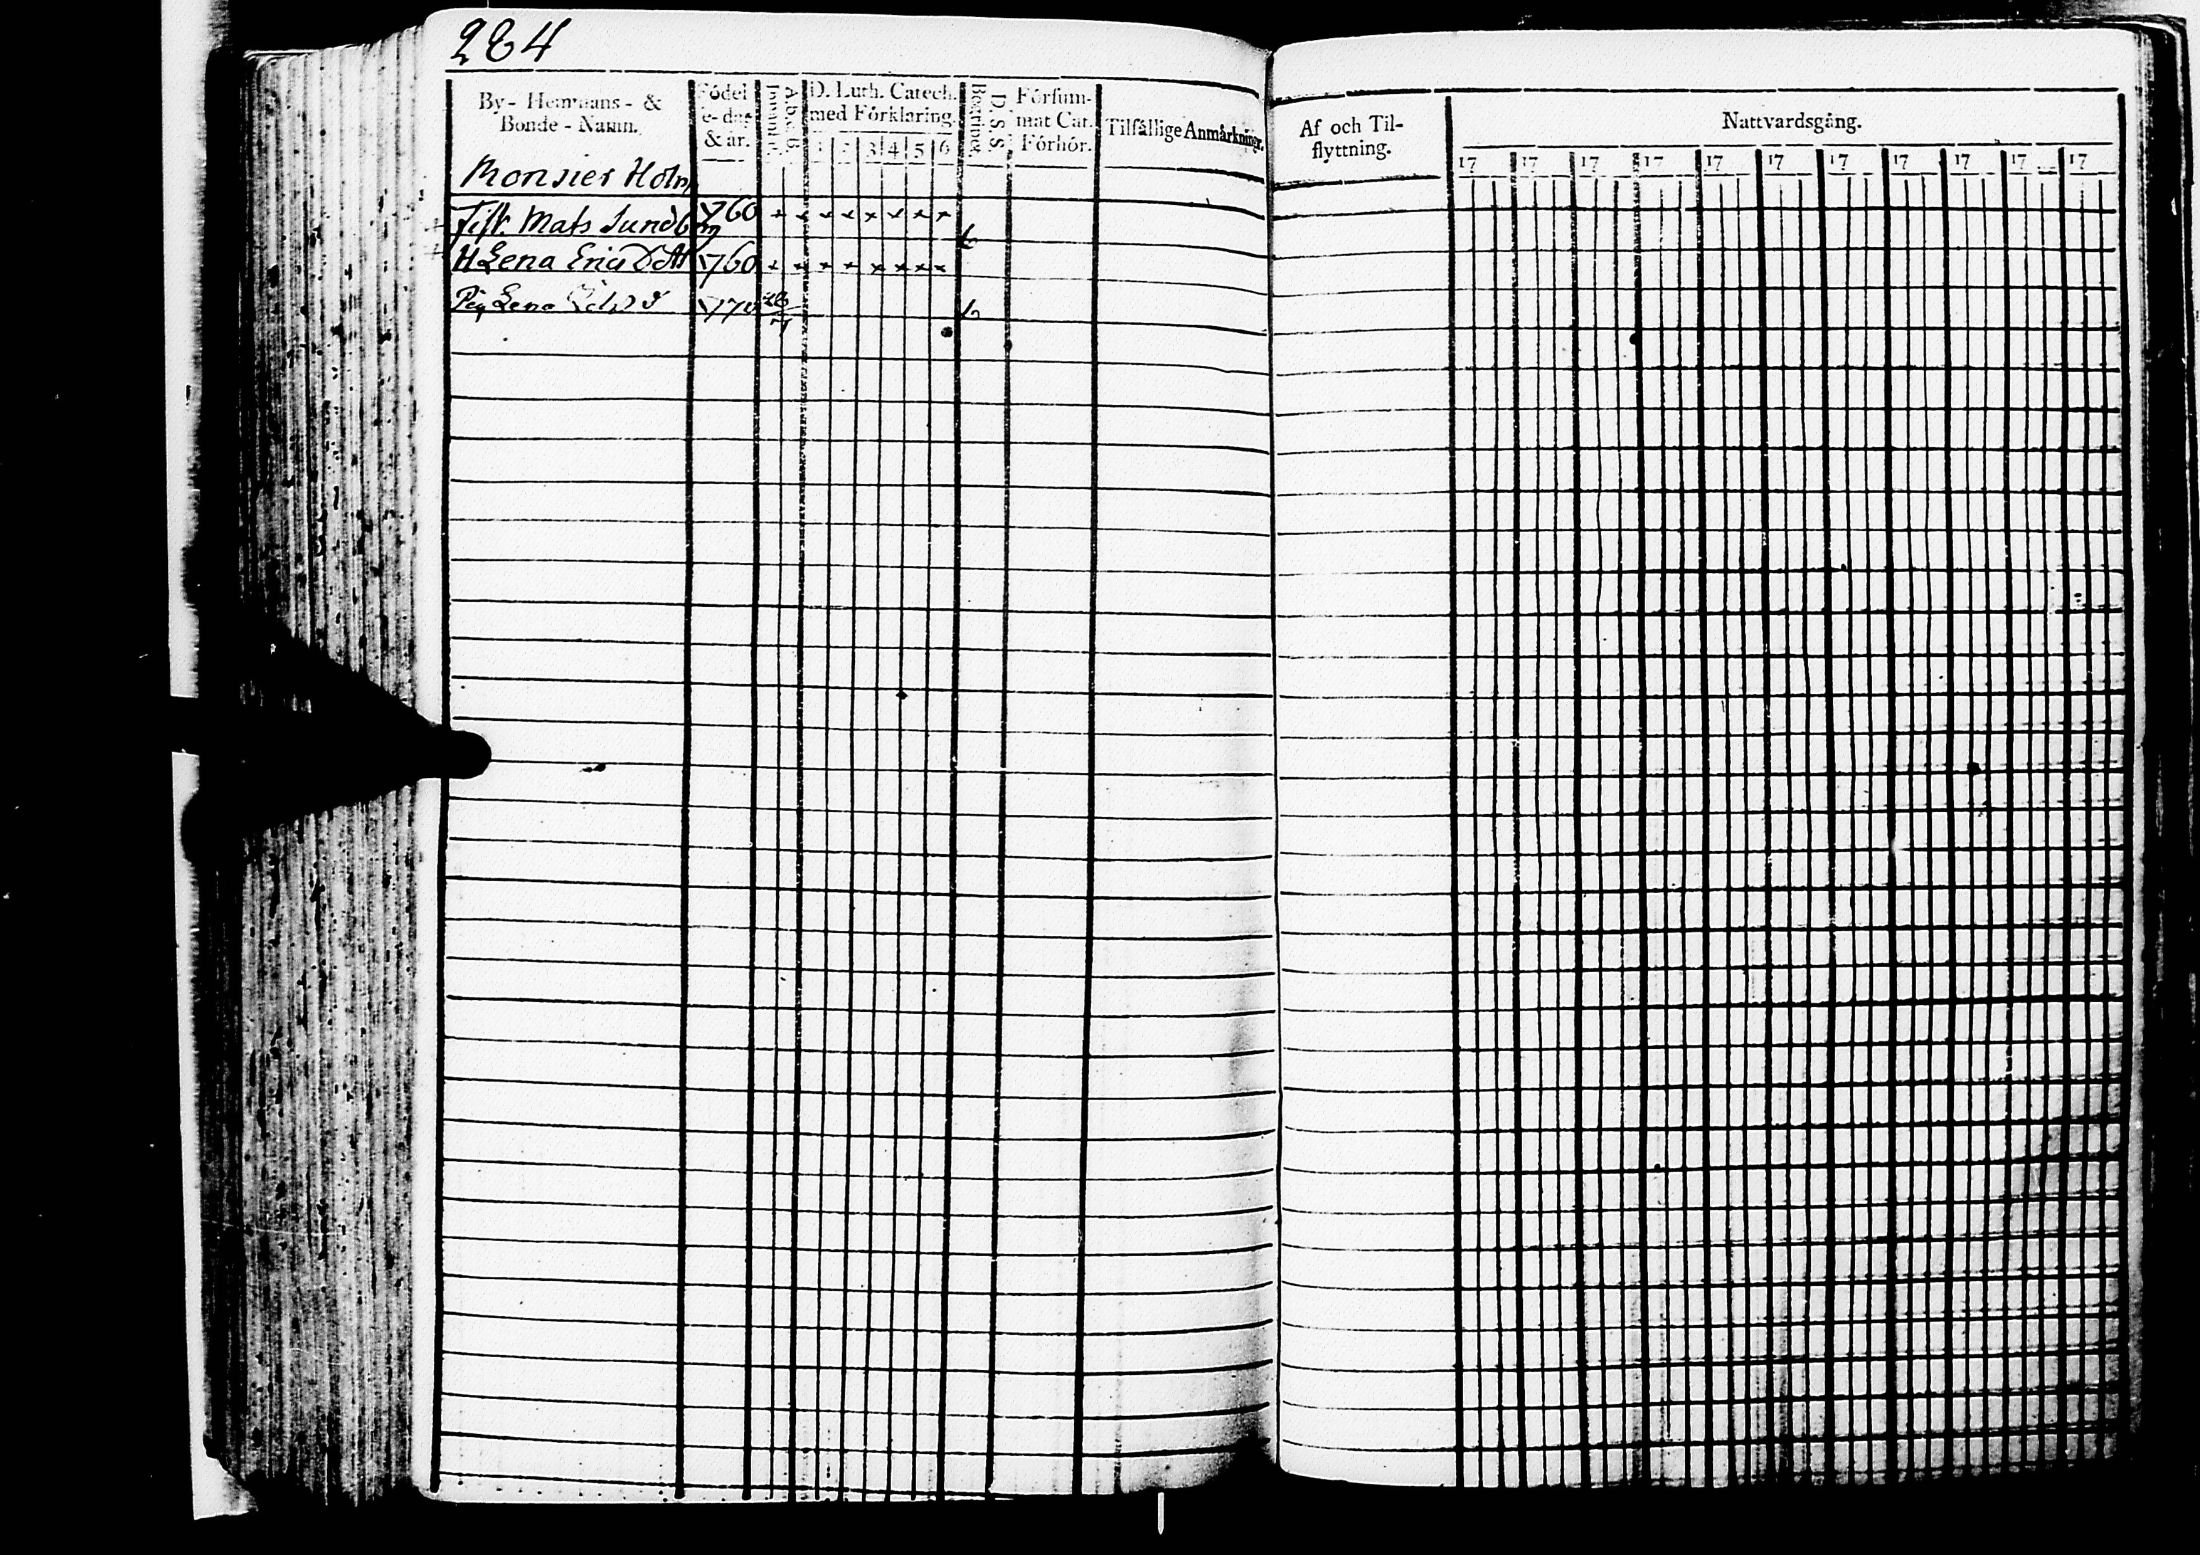 284
By- Hemmans- & Bonde-Namn.
Födelse-dag & år.
Innant.
A.b.c.B.
D. Luth. Catech. med Förklaring.
1 2 3 4 5 6
Begripet.
D. S. S.
Försummat Cat. Förhör.
Tilfällige Anmärkningar.
Monsier Holm
Fisk. Mats Sundberg 760 + + + + + + + + b
H Lena Erics Dotter 760 + + + + + + + +
Pig Lena 770 b
Af och Til-
flyttning.
Nattvardsgång.
17 17 17 17 17 17 17 17 17 17 17